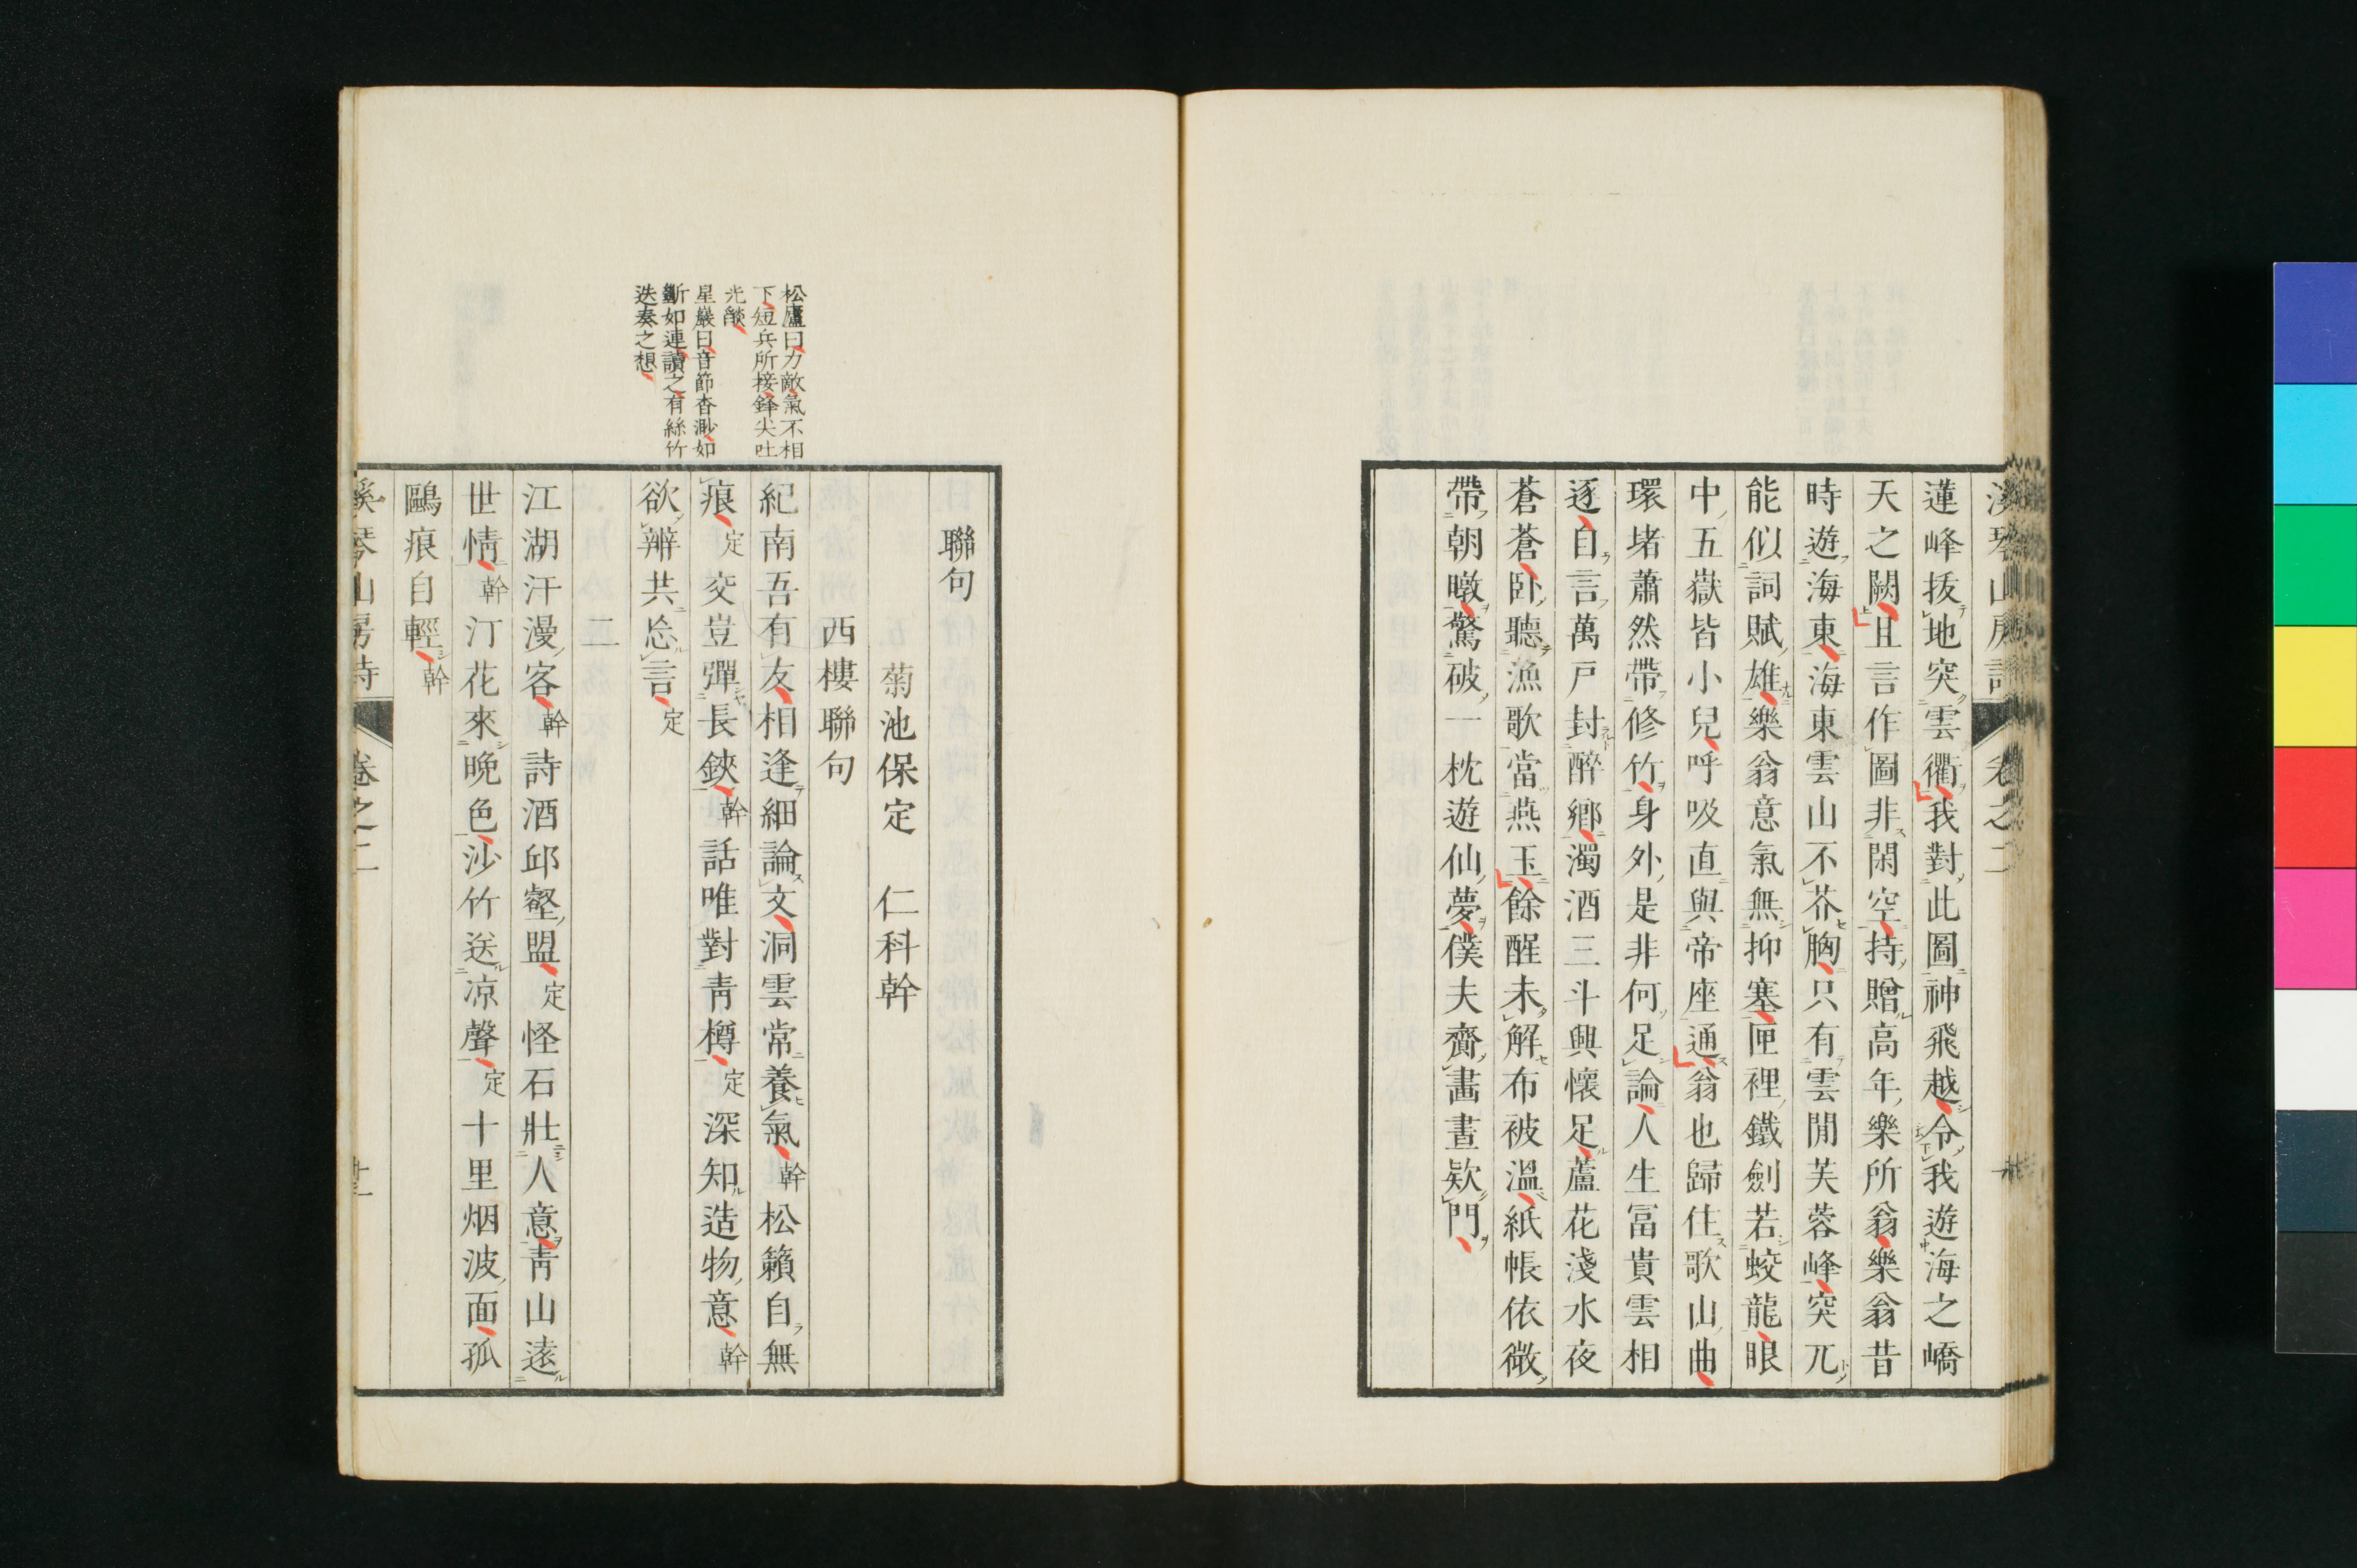 蓮峰抜地突雲衢我對此圖神飛越令我遊海之嶠
天之闕且言作圖非閑空持贈高年樂所翁樂翁昔
時遊海東海東雲山不芥胸只有雲間芙蓉峰突兀
能似詞賦雄樂翁意氣無抑塞匣裡鐵劍若蛟龍眼
中五嶽皆小兒呼吸直與帝座通翁也歸住歌山曲
環堵蕭然帶修竹身外是非何足論人生冨貴雲相
逐自言萬戸封醉鄕濁酒三斗興懷足蘆花淺水夜
蒼蒼卧聽漁歌當燕玉餘醒未解布被溫紙帳依微
帶朝暾驚破一枕遊仙夢僕夫齎畵晝欵門
聯句
菊池保定 仁科幹
西樓聯句
紀南吾有友相逢細論文洞雲常養氣幹松籟自無
痕定交豈彈長鋏幹話唯對靑樽定深知造物意幹
欲辨共忩言定
二
江湖汗漫客幹詩酒邱壑盟定怪石壯人意靑山遠
世情幹汀花來晚色沙竹送凉聲定十里烟波面孤
鷗痕自輕幹
溪琴山房詩 卷之二
松廬曰力敵氣不相
下短兵所接鋒尖吐
光燄
星巖曰音節杳渺如
斷如連讀之有絲竹
迭奏之想